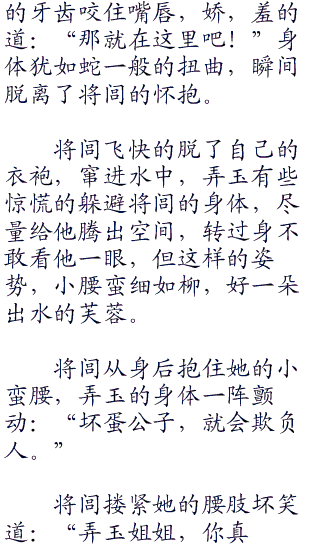 的牙齿咬住嘴唇，娇，羞的
道：“那就在这里吧！”身
体犹如蛇一般的扭曲，瞬间
脱离了将闾的怀抱。
将闾飞快的脱了自己的
衣袍，窜进水中，弄玉有些
惊慌的躲避将闾的身体，尽
量给他腾出空间，转过身不
敢看他一眼，但这样的姿
势，小腰蛮细如柳，好一朵
出水的芙蓉。
将闾从身后抱住她的小
蛮腰，弄玉的身体一阵颤
动：“坏蛋公子，就会欺负
人。”
将闾搂紧她的腰肢坏笑
道：“弄玉姐姐，你真